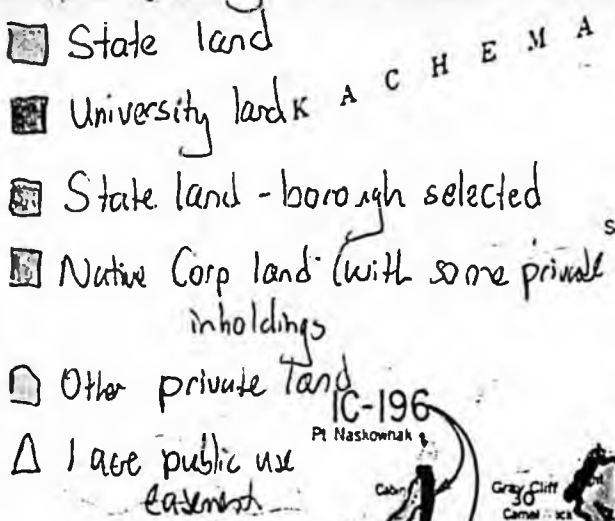 State land
K A C H E M A
University land
State land - borough selected
Native Corp land (with some private
inholdings
Other private land
IC-196
Pt Naskownak
1 acre public use
easement
Cabin
Gray Cliff
Camel